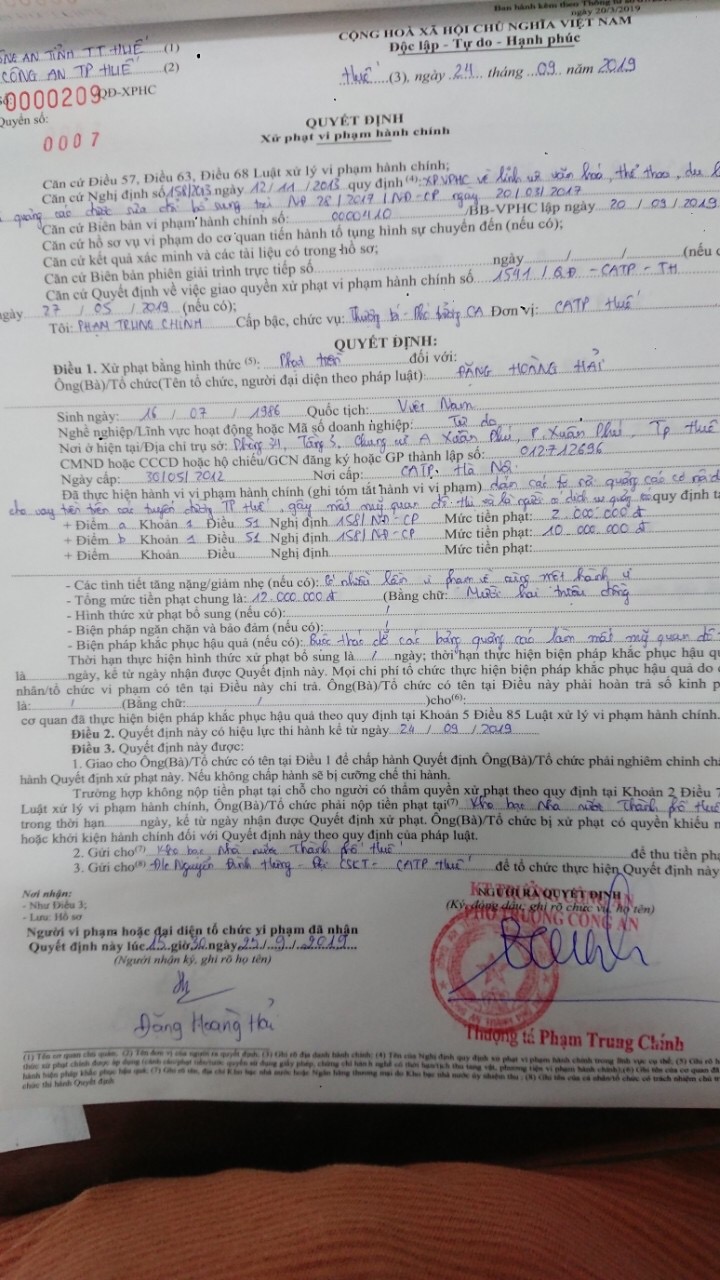 Ban hành kèm theo Thông tư số
ngày 20/3/2019
CÔNG AN TỈNH TT HUẾ (1)
CÔNG AN TP HUẾ (2)
CỘNG HOÀ XÃ HỘI CHỦ NGHĨA VIỆT NAM
Độc lập - Tự do - Hạnh phúc
Huế (3), ngày 24 tháng 09 năm 2019
0000209 QĐ-XPHC
Quyển số:
0007
QUYẾT ĐỊNH
Xử phạt vi phạm hành chính
Căn cứ Điều 57, Điều 63, Điều 68 Luật xử lý vi phạm hành chính;
Căn cứ Nghị định số 158/2013 ngày 12/11/2013 quy định (4): XPVPHC về lĩnh vực văn hoá, thể thao, du
quảng cáo được sửa đổi bổ sung tại NĐ 28/2017/NĐ-CP ngày 20/03/2017
Căn cứ Biên bản vi phạm hành chính số: 0000410 /BB-VPHC lập ngày 20/09/2019
Căn cứ hồ sơ vụ vi phạm do cơ quan tiến hành tố tụng hình sự chuyển đến (nếu có);
Căn cứ kết quả xác minh và các tài liệu có trong hồ sơ;
Căn cứ Biên bản phiên giải trình trực tiếp số ngày / / (nếu
Căn cứ Quyết định về việc giao quyền xử phạt vi phạm hành chính số 1541/QĐ-CATP-TH
ngày 27/05/2019 (nếu có);
Tôi: PHẠM TRUNG CHÍNH Cấp bậc, chức vụ: Thượng tá - Phó trưởng CA Đơn vị: CATP Huế
QUYẾT ĐỊNH:
Điều 1. Xử phạt bằng hình thức (5): Phạt tiền đối với:
Ông(Bà)/Tổ chức(Tên tổ chức, người đại diện theo pháp luật): ĐẶNG HOÀNG HẢI
Sinh ngày: 16/07/1986 Quốc tịch: Việt Nam
Nghề nghiệp/Lĩnh vực hoạt động hoặc Mã số doanh nghiệp: Tự do
Nơi ở hiện tại/Địa chỉ trụ sở: Phòng 311, Tầng 3, Chung cư A Xuân Phú, P. Xuân Phú, Tp Huế
CMND hoặc CCCD hoặc hộ chiếu/GCN đăng ký hoặc GP thành lập số: 012712696
Ngày cấp: 30/05/2012 Nơi cấp: CATP. Hà Nội
Đã thực hiện hành vi vi phạm hành chính (ghi tóm tắt hành vi vi phạm) dán các tờ rơi quảng cáo có nội
cho vay tiền trên các tuyến đường TP Huế, gây mất mỹ quan đô thị và là người có dịch vụ quảng cáo quy định tại
+ Điểm a Khoản 1 Điều 51 Nghị định 158/NĐ-CP Mức tiền phạt: 2.000.000đ
+ Điểm b Khoản 1 Điều 51 Nghị định 158/NĐ-CP Mức tiền phạt: 10.000.000đ
+ Điểm Khoản Điều Nghị định Mức tiền phạt:
- Các tình tiết tăng nặng/giảm nhẹ (nếu có): Có nhiều lần vi phạm về cùng một hành vi
- Tổng mức tiền phạt chung là: 12.000.000đ (Bằng chữ: Mười hai triệu đồng
- Hình thức xử phạt bổ sung (nếu có): /
- Biện pháp ngăn chặn và bảo đảm (nếu có): /
- Biện pháp khắc phục hậu quả (nếu có): Buộc tháo dỡ các bảng quảng cáo làm mất mỹ quan đô
Thời hạn thực hiện hình thức xử phạt bổ sung là / ngày; thời hạn thực hiện biện pháp khắc phục hậu
là ngày, kể từ ngày nhận được Quyết định này. Mọi chi phí tổ chức thực hiện biện pháp khắc phục hậu quả do
nhân/tổ chức vi phạm có tên tại Điều này chi trả. Ông(Bà)/Tổ chức có tên tại Điều này phải hoàn trả số kinh
là: / (Bằng chữ: / )cho(6):
cơ quan đã thực hiện biện pháp khắc phục hậu quả theo quy định tại Khoản 5 Điều 85 Luật xử lý vi phạm hành chính.
Điều 2. Quyết định này có hiệu lực thi hành kể từ ngày 24/09/2019
Điều 3. Quyết định này được:
1. Giao cho Ông(Bà)/Tổ chức có tên tại Điều 1 để chấp hành Quyết định Ông(Bà)/Tổ chức phải nghiêm chỉnh
hành Quyết định xử phạt này. Nếu không chấp hành sẽ bị cưỡng chế thi hành.
Trường hợp không nộp tiền phạt tại chỗ cho người có thẩm quyền xử phạt theo quy định tại Khoản 2 Điều
Luật xử lý vi phạm hành chính, Ông(Bà)/Tổ chức phải nộp tiền phạt tại(7) Kho bạc Nhà nước Thành phố Huế
trong thời hạn ngày, kể từ ngày nhận được Quyết định xử phạt. Ông(Bà)/Tổ chức bị xử phạt có quyền khiếu
hoặc khởi kiện hành chính đối với Quyết định này theo quy định của pháp luật.
2. Gửi cho(7) Kho bạc Nhà nước Thành phố Huế để thu tiền
3. Gửi cho(8) Đ/c Nguyễn Đình Thường - Đội CSKT - CATP Huế để tổ chức thực hiện Quyết định này
Nơi nhận:
- Như Điều 3;
- Lưu: Hồ sơ
NGƯỜI RA QUYẾT ĐỊNH
(Ký, đóng dấu, ghi rõ chức vụ, họ tên)
KT. TRƯỞNG CÔNG AN
PHÓ TRƯỞNG CÔNG AN
Người vi phạm hoặc đại diện tổ chức vi phạm đã nhận
Quyết định này lúc 15 giờ 30 ngày 25/9/2019
(Người nhận ký, ghi rõ họ tên)
Đặng Hoàng Hải
Thượng tá Phạm Trung Chính